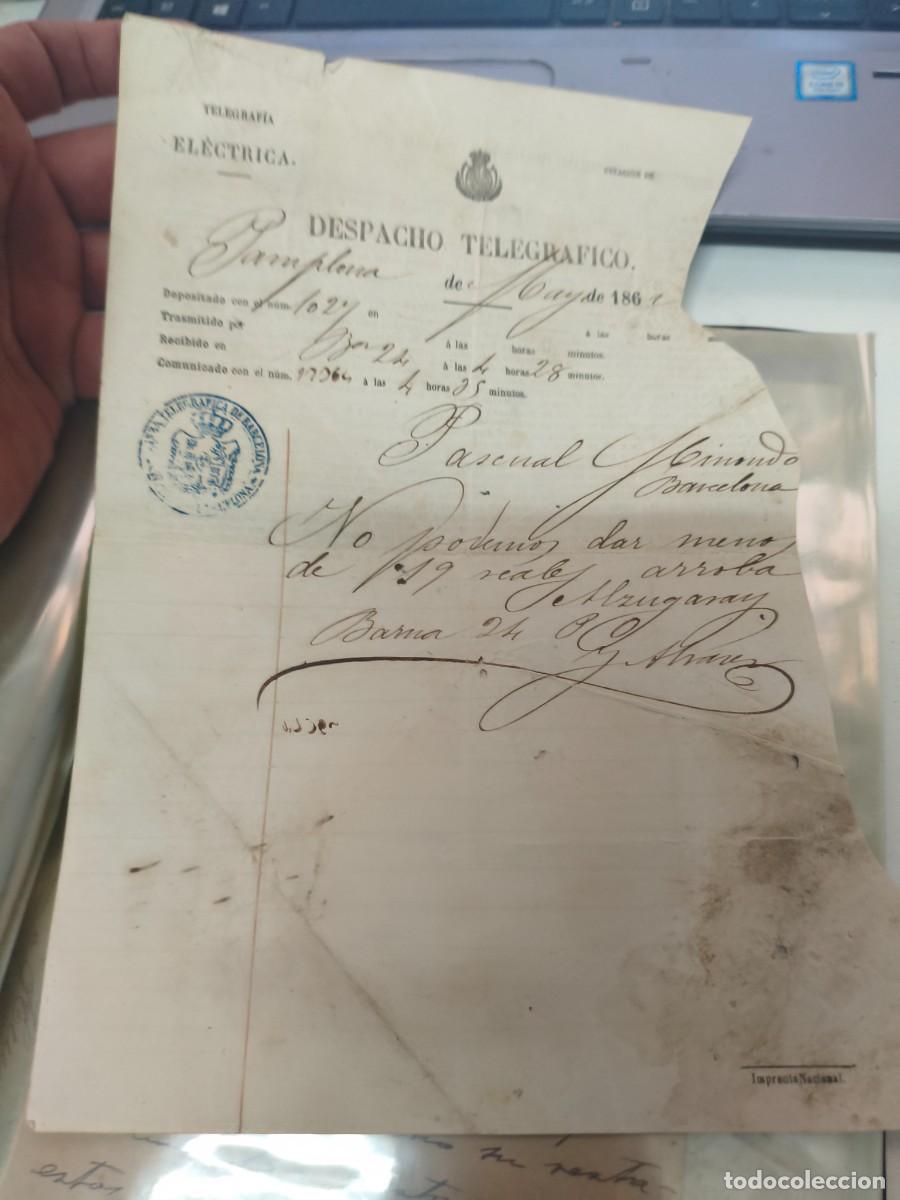 TELEGRAFÍA
ELÈCTRICA.
ESTACION DE
DESPACHO TELEGRAFICO.
Pamplona de Mayo de 186
Depositado con el núm. 1027 en á las horas
Trasmitido por á las horas minutos.
Recibido en Bar 24 á las 4 horas 28 minutos.
Comunicado con el núm. 17964 á las 4 horas 35 minutos.
TELEGRAFICA DE BARCELONA
Pascual
Barcelona
No podemos dar menos
de 19 reales arroba
Alzugaray
Barna 24
Alvarez
Imprenta Nacional.
todocoleccion
estos